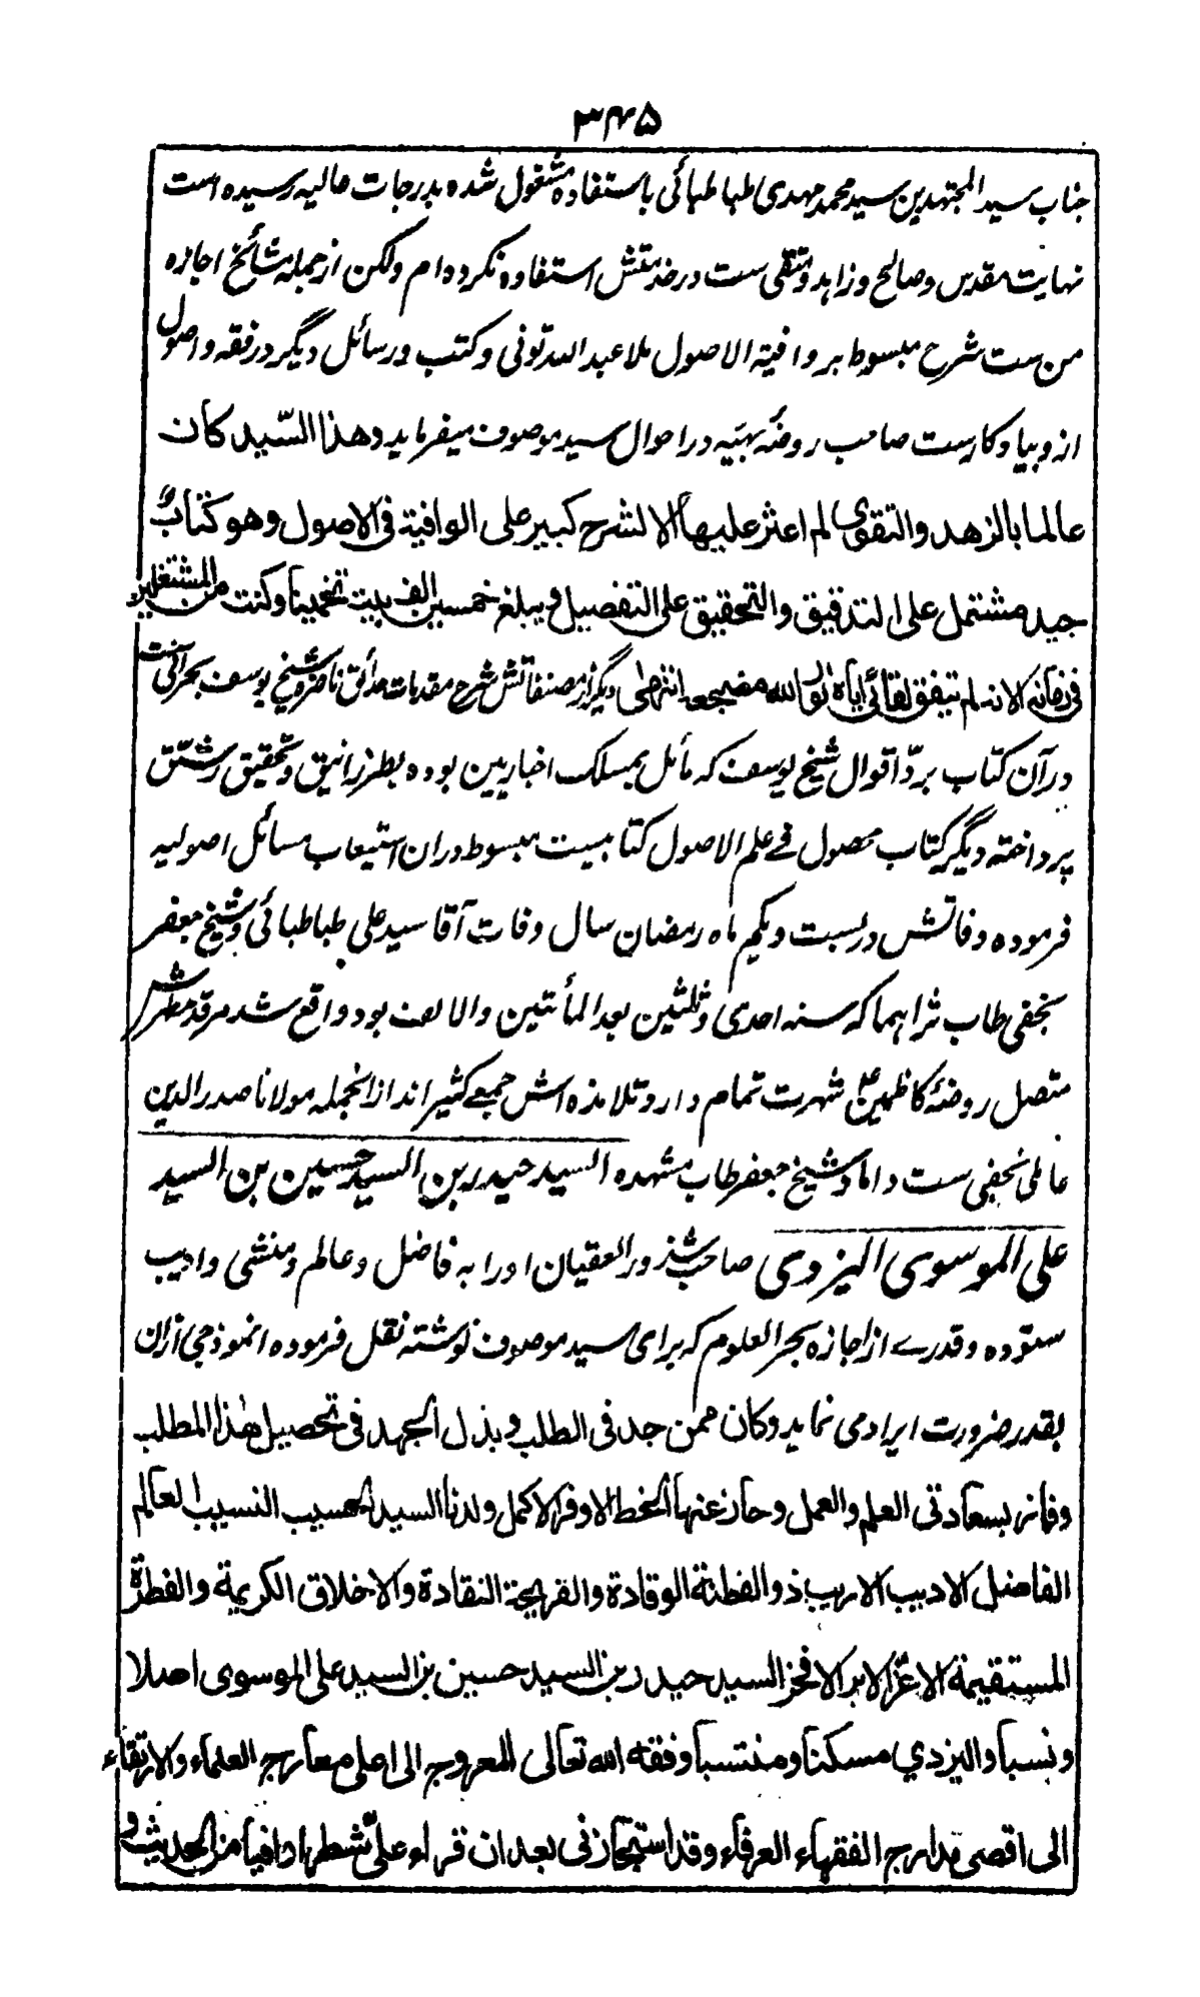 ۳۴۵
جناب سید المجتهدین سید محمد مهدی طباطبائی باستفاده مشغول شده بدرجات عالیه رسیده است
نهایت مقدس و صالح و زاهد و متقی ست در خدمتش استفاده نکرده ام ولکن از جمله مشائخ اجازه
من ست شرح مبسوط بر وافیة الاصول ملا عبد الله تونی و کتب و رسائل دیگر در فقه و اصول
ازو بیادگارست صاحب روضهٔ بهیه در احوال سید موصوف میفرماید وهذا السّید کان
عالما بالزهد والتقوی لم اعثر علیها الا لشرح کبیر علی الوافیة فی الاصول وهو کتابٌ
جید مشتمل علی التدقیق والتحقیق علی التفصیل ویبلغ خمسین الف بیت تخمیناً وکنت من المشتغلین
فی زمانه الا انه لم یتفق لقائی ایاه نور الله مضجعه انتهی دیگر از مصنفاتش شرح مقدمات حدائق ناضره شیخ یوسف بحرانی است
در آن کتاب بردّ اقوال شیخ یوسف که مائل بمسلک اخباریین بوده بطرز انیق و تحقیق رشیق
پرداخته دیگر کتاب محصول فے علم الاصول کتابیست مبسوط دران استیعاب مسائل اصولیه
فرموده وفاتش در بست و یکم ماه رمضان سال وفات آقا سید علی طباطبائی و شیخ جعفر
نجفی طاب ثراهما که سنه احدی وثلثین بعد المأتین والالف بود واقع شد مرقد مطهرش
متصل روضهٔ کاظمینؑ شهرت تمام دارد تلامذه اش جمعے کثیر اند ازانجمله مولانا صدر الدین
عاملی نجفی ست داماد شیخ جعفر طاب مشهده السید حیدر بن السید حسین بن السید
علی الموسوی الیزدی صاحب شذور العقیان او را به فاضل و عالم و منشی و ادیب
ستوده و قدرے از اجازه بحر العلوم که برای سید موصوف نوشته نقل فرموده انموذجی ازان
بقدر ضرورت ایراد می نماید وکان ممن جد فی الطلب وبذل الجهد فی تحصیل هٰذا المطلب
وفاز بسعادتی العلم والعمل وحاز عنها الحظ الاوفر الاکمل ولدنا السید الحسیب النسیب العالم
الفاضل الادیب الاریب ذو الفطنة الوقادة والقریحة النقادة والاخلاق الکریمة والفطرة
المستقیمة الاعز الابر الافخر السید حیدر بن السید حسین بن السید علی الموسوی اصلا
ونسبا والیزدی مسکنا ومنتسبا وفقه الله تعالی للعروج الی اعلی معارج العلماء والارتقاء
الی اقصی مدارج الفقهاء العرفاء وقد استجازنی بعد ان قراء علیّ شطرا وافیا من الحدیث و